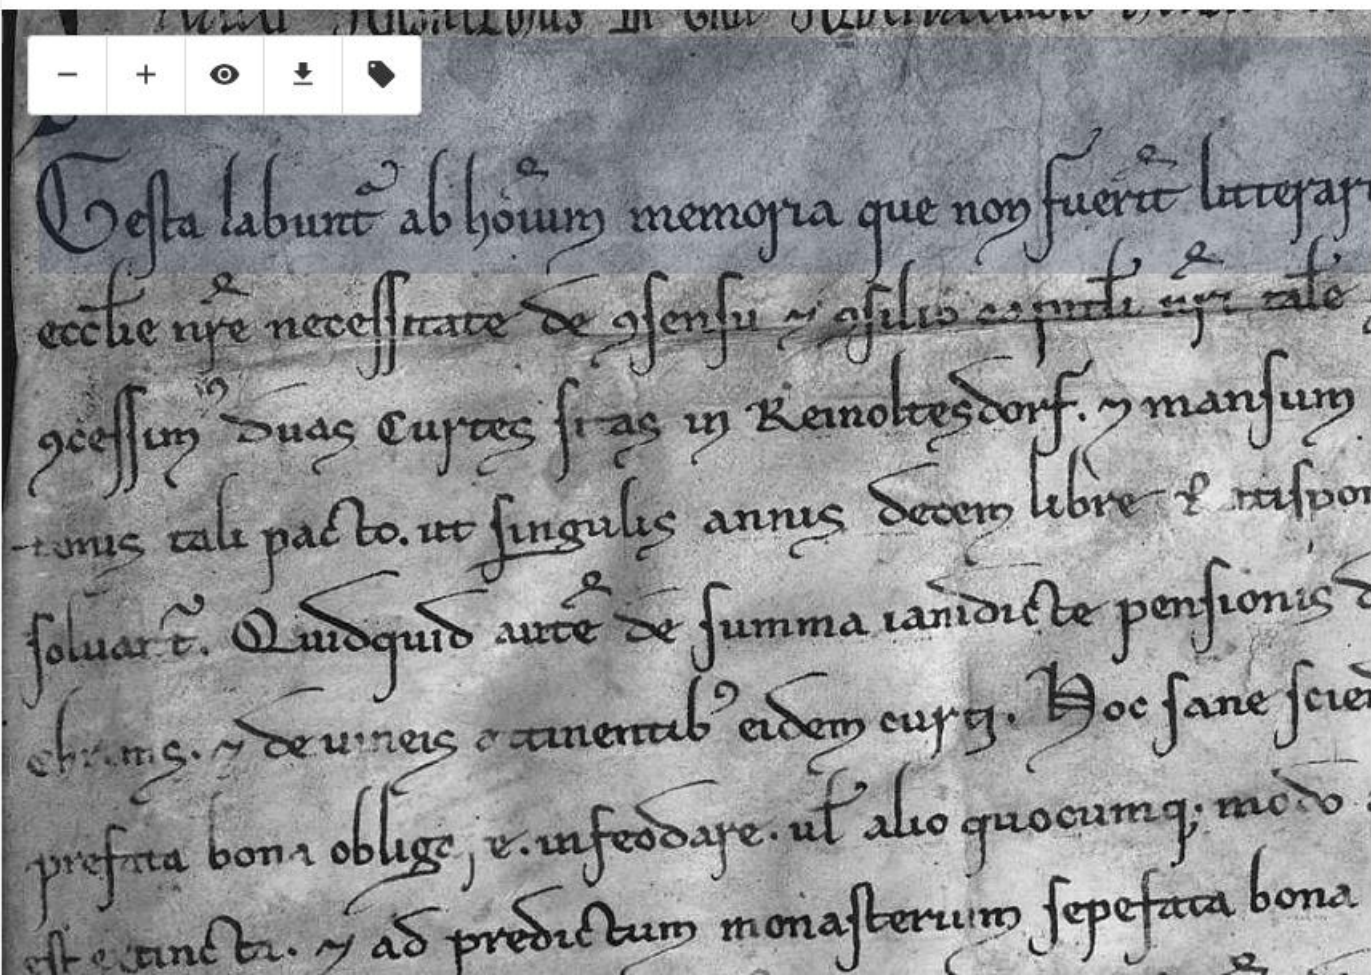 Gesta labunt᷑ ab hoı̅um memoria que non fuerı̅t litterar
eccl̅ie nr̅e necessitate de ꝯsensu ⁊ ꝯsilio capituli nr̅i tale
ꝯcessim᷒ duas Curtes sitas in Reinoltesdorf. ⁊ mansum
tali pacto. ut singulis annis decem libre
soluant᷑. Quidquid aute̅ de summa iamdicte pensionis
⁊ de uineis attinentib᷒ eidem curti. Hoc sane
prefata bona obligare. infeodare. ul̅ alio quocumq; modo
⁊ ad predictum monasterium sepefata bona